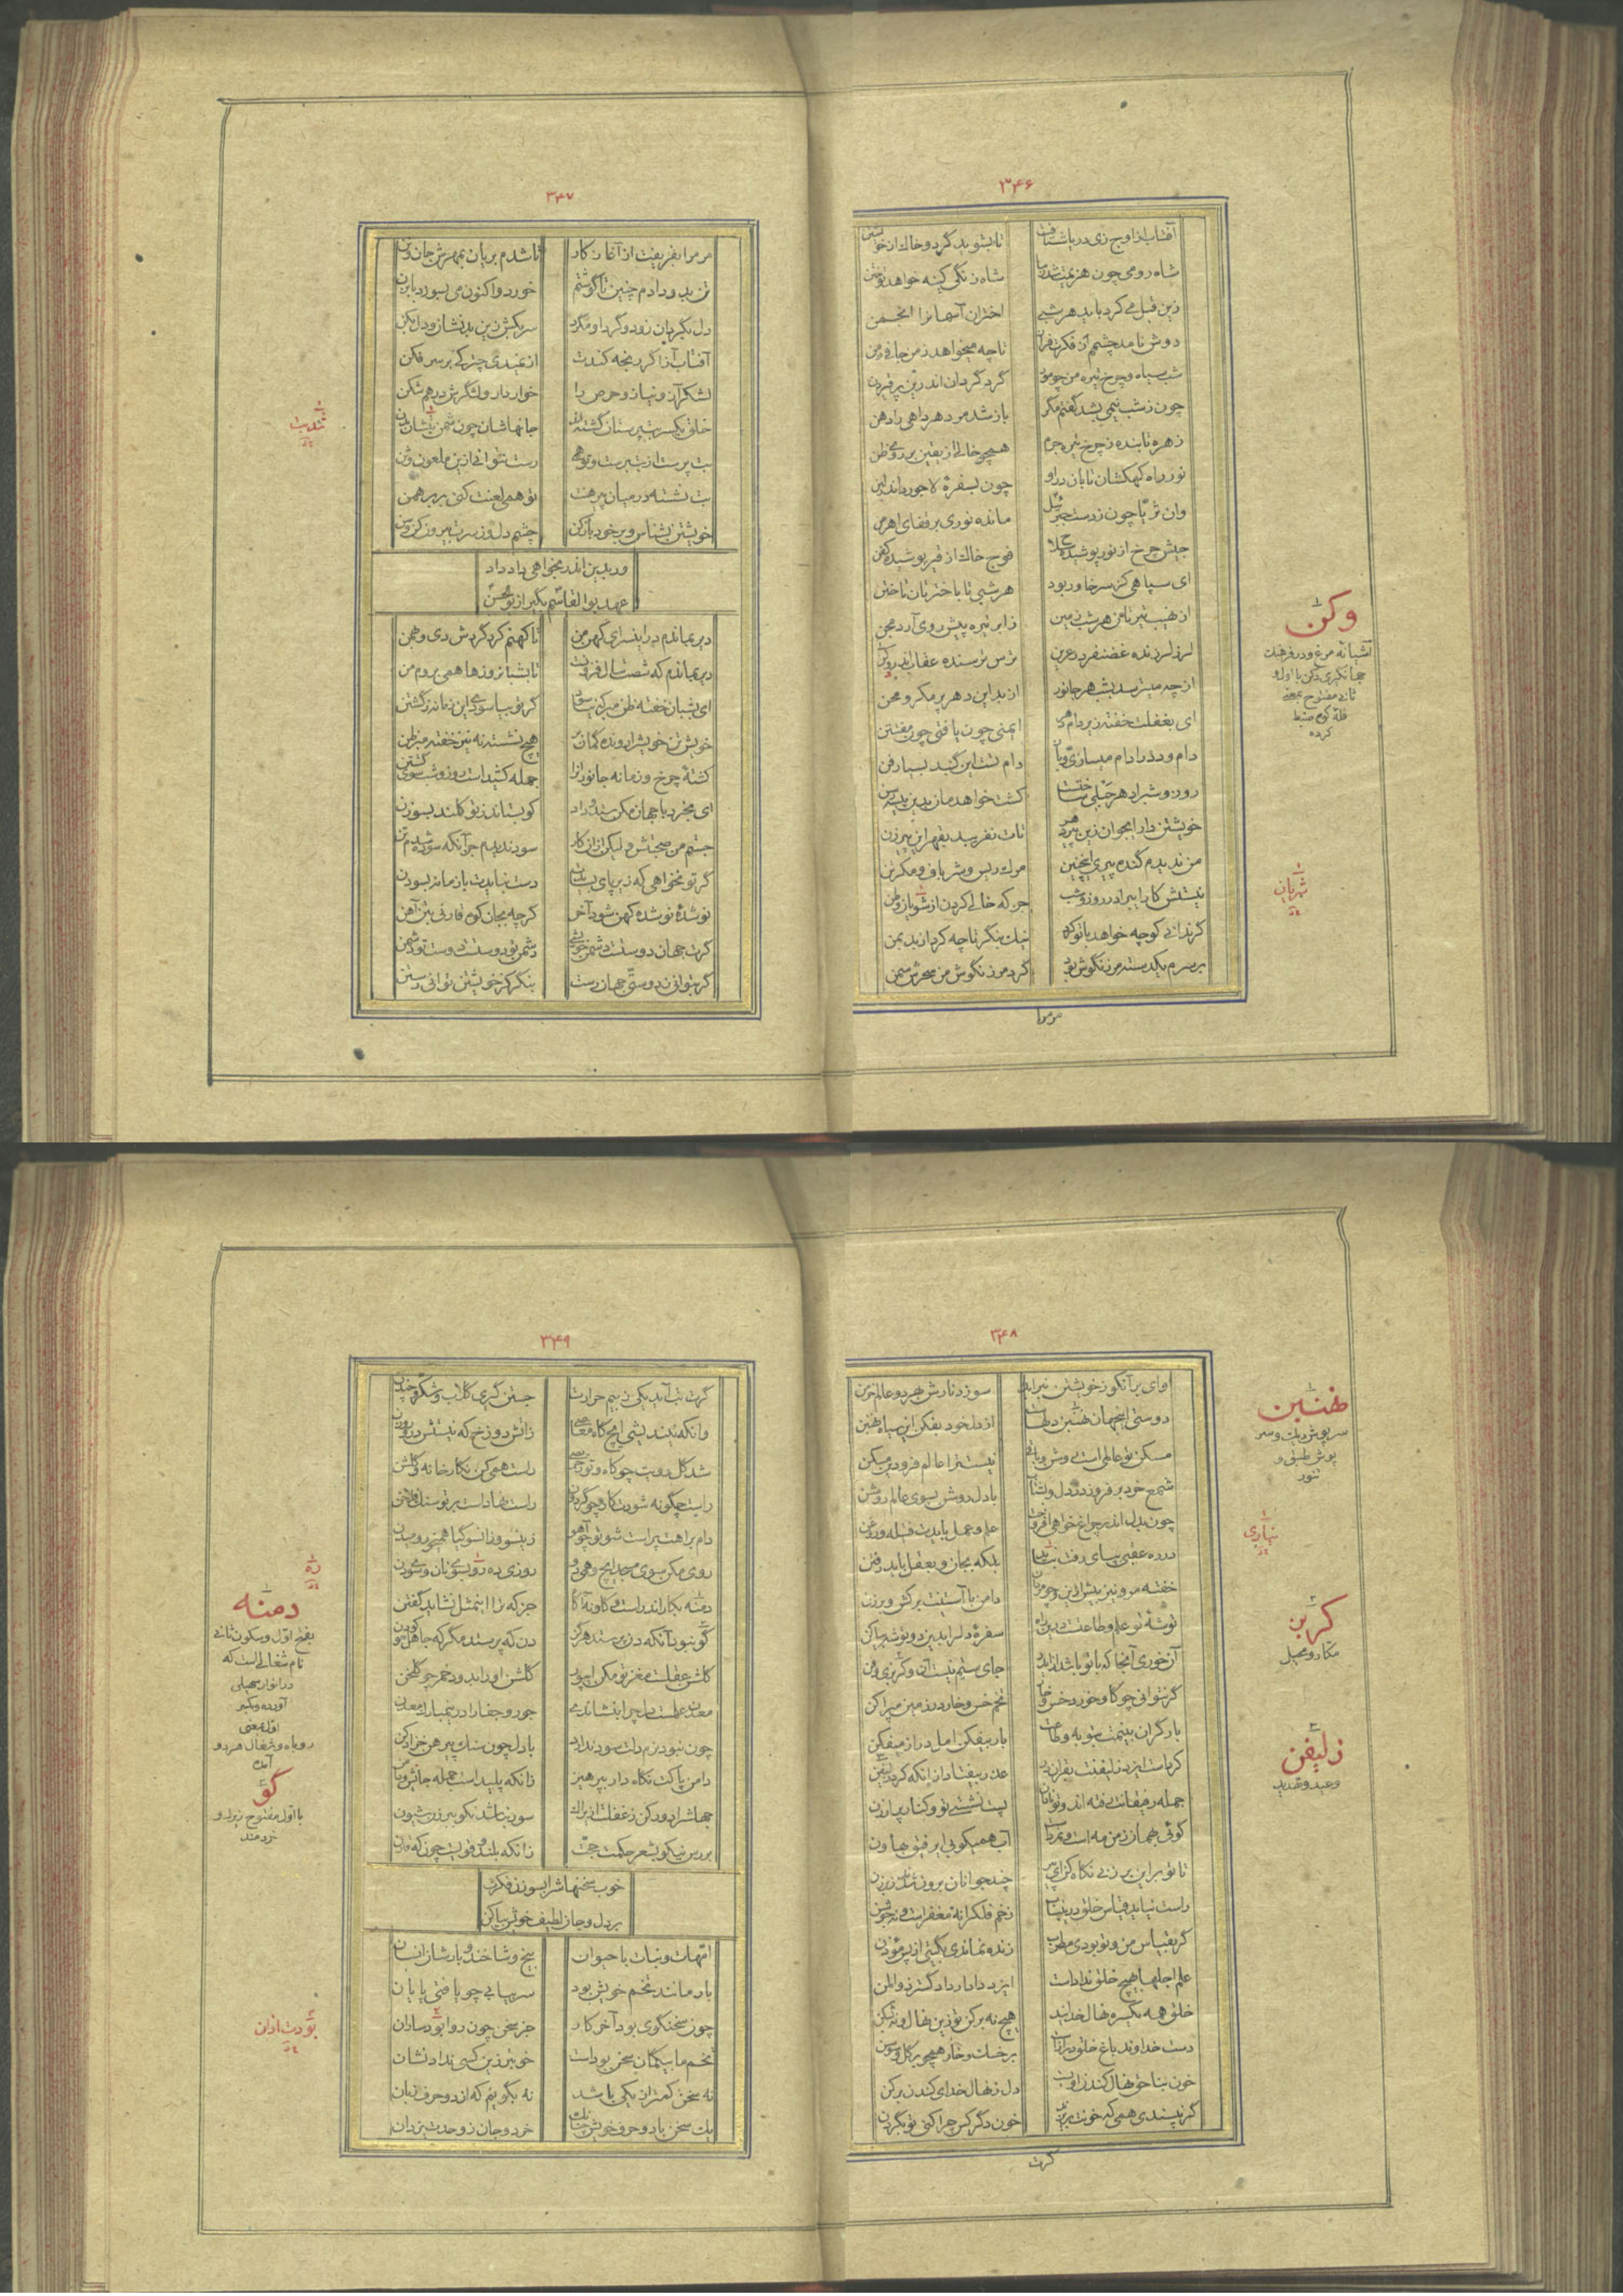 ۳۴۶
آفتاب از اوج زی دریا شتافت تا بشوید گرد و خاک از خویشتن
شاه رومی چون هزیمت شد ز ما شاه زنگی کینه خواهد توختن
زین قبل می کرد باید هر شبی اختران آسمانرا انجمن
دوش نامد چشمم از فکرت فراز تا چه میخواهد ز من جافی زمن
شب سیاه و چرخ تیره من چو مور گرد گردان اندرین پر قیر دن
چون ز شب نیمی بشد گفتم مگر باز شد مر دهر داهی را دهن
زهره تابنده ز چرخ تیره جرم همچو خالی از یقین بر روی ظن
نور راه کهکشان تابان درو چون بسفره لاجورد اندر لبن
وان ثریا چون ز دست جبرئیل مانده نوری بر قفای اهرمن
جیش چرخ از نور پوشیده حلا فوج خاک از قیر پوشیده کفن
ای سپاهی کز سر خاور بود هر شبی تا باختر تان تاختن
از نهیب تیرتان هر شب زمین ز ابر تیره پیش روی آرد مجن
لرز لرزنده غضنفر در عرین ترس ترسنده عقاب اندر وکن
از چه میترسد بشب هر جانور از بد این دهر پر مکر و محن
ای بغفلت خفته زیر دام دهر ایمنی چون یافتی چون مفتتن
دام و دد را دام میسازی و باز دام تست این گنبد بسیار فن
روز و شب را دهر حبلی ساختست کشت خواهدمان بدین پیسه رسن
خویشتن دار ای جوان زین پیر دهر تات نفریبد بقهر این پیرزن
من ندیدم گنده پیری اینچنین مرگ ریس و شر باف و مکر تن
نیستش کار ای برادر روز و شب جز که خالی کردن از شویان وطن
گر ندانی کو چه خواهد با تو کرد نیک بنگر تا چه کرد از بد بمن
بر سرم یکدسته مرزنگوش بود کرد مرزنگوش من سحرش سمن
مر مرا
وکن
آشیانهٔ مرغ و در فرهنگ
جهانگیری وکن با اول و
ثانی مفتوح بمعنی
قلهٔ کوه ضبط
کرده
شویان
۳۴۷
مر مرا بفریفت از آغاز کار تا شدم بریان بمهرش جان و تن
تن بدو دادم چنین تا گوشتم خورد و اکنون می بسوزد بابزن
دل بگیربان زود و گرد او مگرد سر بکش زین بد نشان و دل بکن
آفتاب آز اگر رنجه کندت از نمدی چترکی بر سر فکن
لشکر آز و نیاز و حرص را خوار دار و لشکرش درهم شکن
خلق یکسر بت پرستان گشته اند جانهاشان چون شمن بتشان بدن
بت پرست از بت پرست و تو همی رست نتوانی ازین ملعون وثن
بت نشسته در میان پیرهنت تو همی لعنت کنی بر برهمن
خویشتن بشناس و بر خود باز کن چشم دل وز سرت بیرون کن وسن
ور بدین اندر بخواهی داد داد
عهد بوالقاسم بگیر از بوالحسن
دیر بماندم در این سرای کهن من تا کهنم کرد گردش دی و بهمن
دیر بماندم که شصت سال فزونست تا بشبانروزها همی بروم من
ای بشبان خفته ظن مبر که بیاسود گر تو بیاسودی این زمانه ز گشتن
خویشتن خویش را رونده گمان بر هیچ نشسته نه نیز خفته مبر ظن
گشتهٔ چرخ و زمانه جانوران را جمله کشیدست روز و شب سوی گشتن
ای بخرد با جهان مکن ستد و داد کو بستاند ز تو کلند بسوزن
جستم من صحبتش ولیکن ازان کار سود ندیدم جز آنکه سوده شدم تن
گر تو نخواهی که زیر پای بسایدت دست نبایدت با زمانه بسودن
نو شدهٔ نو شده کهن شود آخر گرچه بجان کوه قارنی بتن آهن
گرت جهان دوستست دشمن خویشی دشمن تو دوستست دوست تو دشمن
گر بتوانی ز دوستی جهان رست بنگر کز خویشتن توانی رستن
۳۴۸
وای بر آنکو ز خویشتن نبرآید سوزد نارش بهر دو عالم خرمن
دوستی اینجهان نهنبن دلهاست از دل خود بفکن این سیاه نهنبن
مسکن تو عالمی است روشن و باقی نیست ترا عالم فرودین مسکن
شمع خرد بر فروز در دل و بشتاب با دل روشن بسوی عالم روشن
چون بدل اندر چراغ خواهی افروخت علم و عمل بایدت فتیله و روغن
در ره عقبی بپای رفت نباید بلکه بجان و بعقل باید رفتن
خفته مرو نیز بیش ازین و چو مردان دامن با آستینت برکش و برزن
توشهٔ تو علم و طاعت است درین راه سفرهٔ دل را بدین دو توشه بیاکن
آن خوری آنجا که با تو باشد از ایدر جای ستم نیست آن و گربزی و فن
گر نتوانی چو گاو خورد خس و خار تخم خس و خار در زمین مپراکن
بار گران بینمت بتوبه و طاعت بار بیفکن امل دراز میفکن
کردست ایزد زلیفنت بقران در عذر بیفتاد از آنکه کرد زلیفن
جمله رفیقانت رفته اند و تو نادان پست نشستی تو و کنار پر ارزن
گوئی بهمان ز من مه است و نمردست آب همی کوبی ای رفیق بهاون
تا تو بر این برزنی نگاه کن ای پیر چند جوانان برون شدند ز برزن
راست نیاید قیاس خلق درین باب زخم فلک را نه مغفر است و نه جوشن
گر بقیاس من و تو بودی مطرب زنده نماندی بگیتی از پس مؤذن
علم اجلها بهیچ خلق ندادست ایزد دادار داد گستر ذوالمن
خلق همه یکسره نهال خدایند هیچ نه برکن تو زین نهال و نه بشکن
دست خداوند باغ خلق درازست بر خسک و خار همچو بر گل و سوسن
خون بناحق نهال کندن اویست دل ز نهال خدای کندن برکن
گر نپسندی همی که خونت بریزند خون دگر کس چرا کنی تو بگردن
گرت
نهنبن
سرپوش دیک و سر
پوش طبق و
تنور
نباید
گربز
مکار و محیل
زلیفن
وعید و تهدید
۳۴۹
گرت تب آید یکی ز بیم حرارت جستن گیری گلاب و شکر و چندن
وانگه نندیشی ایچ گاه معاصی زآتش دوزخ که نیستش در و روزن
شد گل رویت چو کاه و تو بحریصی راست همی کن نگارخانه و گلشن
راست چگونه شودت کار چو گردون راست نهادست بر تو سنگ فلاخن
دام براهت پر است شو تو چو آهو زینسو و زانسو گیا همی خور و می دن
روی مکن سوی حد ایچ و همی رو روزی ده ره بسوی نان و سوی دن
دمنه بکار اندر است و گاو نه آگاه جز که ترا اینمثل نشاید گفتن
گو نبود آنکه دن پرستد هرگز دن که پرستد مگر که جاهل و کودن
گلشن عقلست مغز تو مکن ای پور گلشن او را بدود خمر چو گلخن
معدن علمست دل چرا بنشاندی جور و جفا را در این مبارک معدن
چون نبود نرم دلت سود ندارد با دل چون سنگ پیرهن خز ادکن
دامن پاکت نگاه دار بپرهیز زانکه پلید است جمله جانش و دامن
جهل شراب دور کن ز غفلت زیراک سور نباشد نکو ببرزن شیون
بررس نیکو بشعر حکمت حجت زانکه بلند و قویست چون که قارن
خوب سخنهاش را بسوزن فکرت
بر دل و جان لطیف خویش بیاژن
امهات و نبات با حیوان بیخ و شاخند و بارشان انسان
بار مانند تخم خویش بود سر بیابی چو یافتی پایان
چون سخنگوی بود آخر کار جز سخن چون روا بود ساران
تخم ما بیگمان سخن بودست خوبتر زین کسی نداد نشان
نه سخن کمتر از یکی باشد نه بگویم که از دو حرف زبان
یک سخن با دو حرف خویش چنانک خرد و جان ز وحدت یزدان
ره
دمنه
بفتح اول و سکون ثانی
نام شغالی است که
در انوار سهیلی
آورده و بکسر
اول بمعنی
روباه و شغال هر دو
آمده
گو
با اول مفتوح زیرک و
خردمند